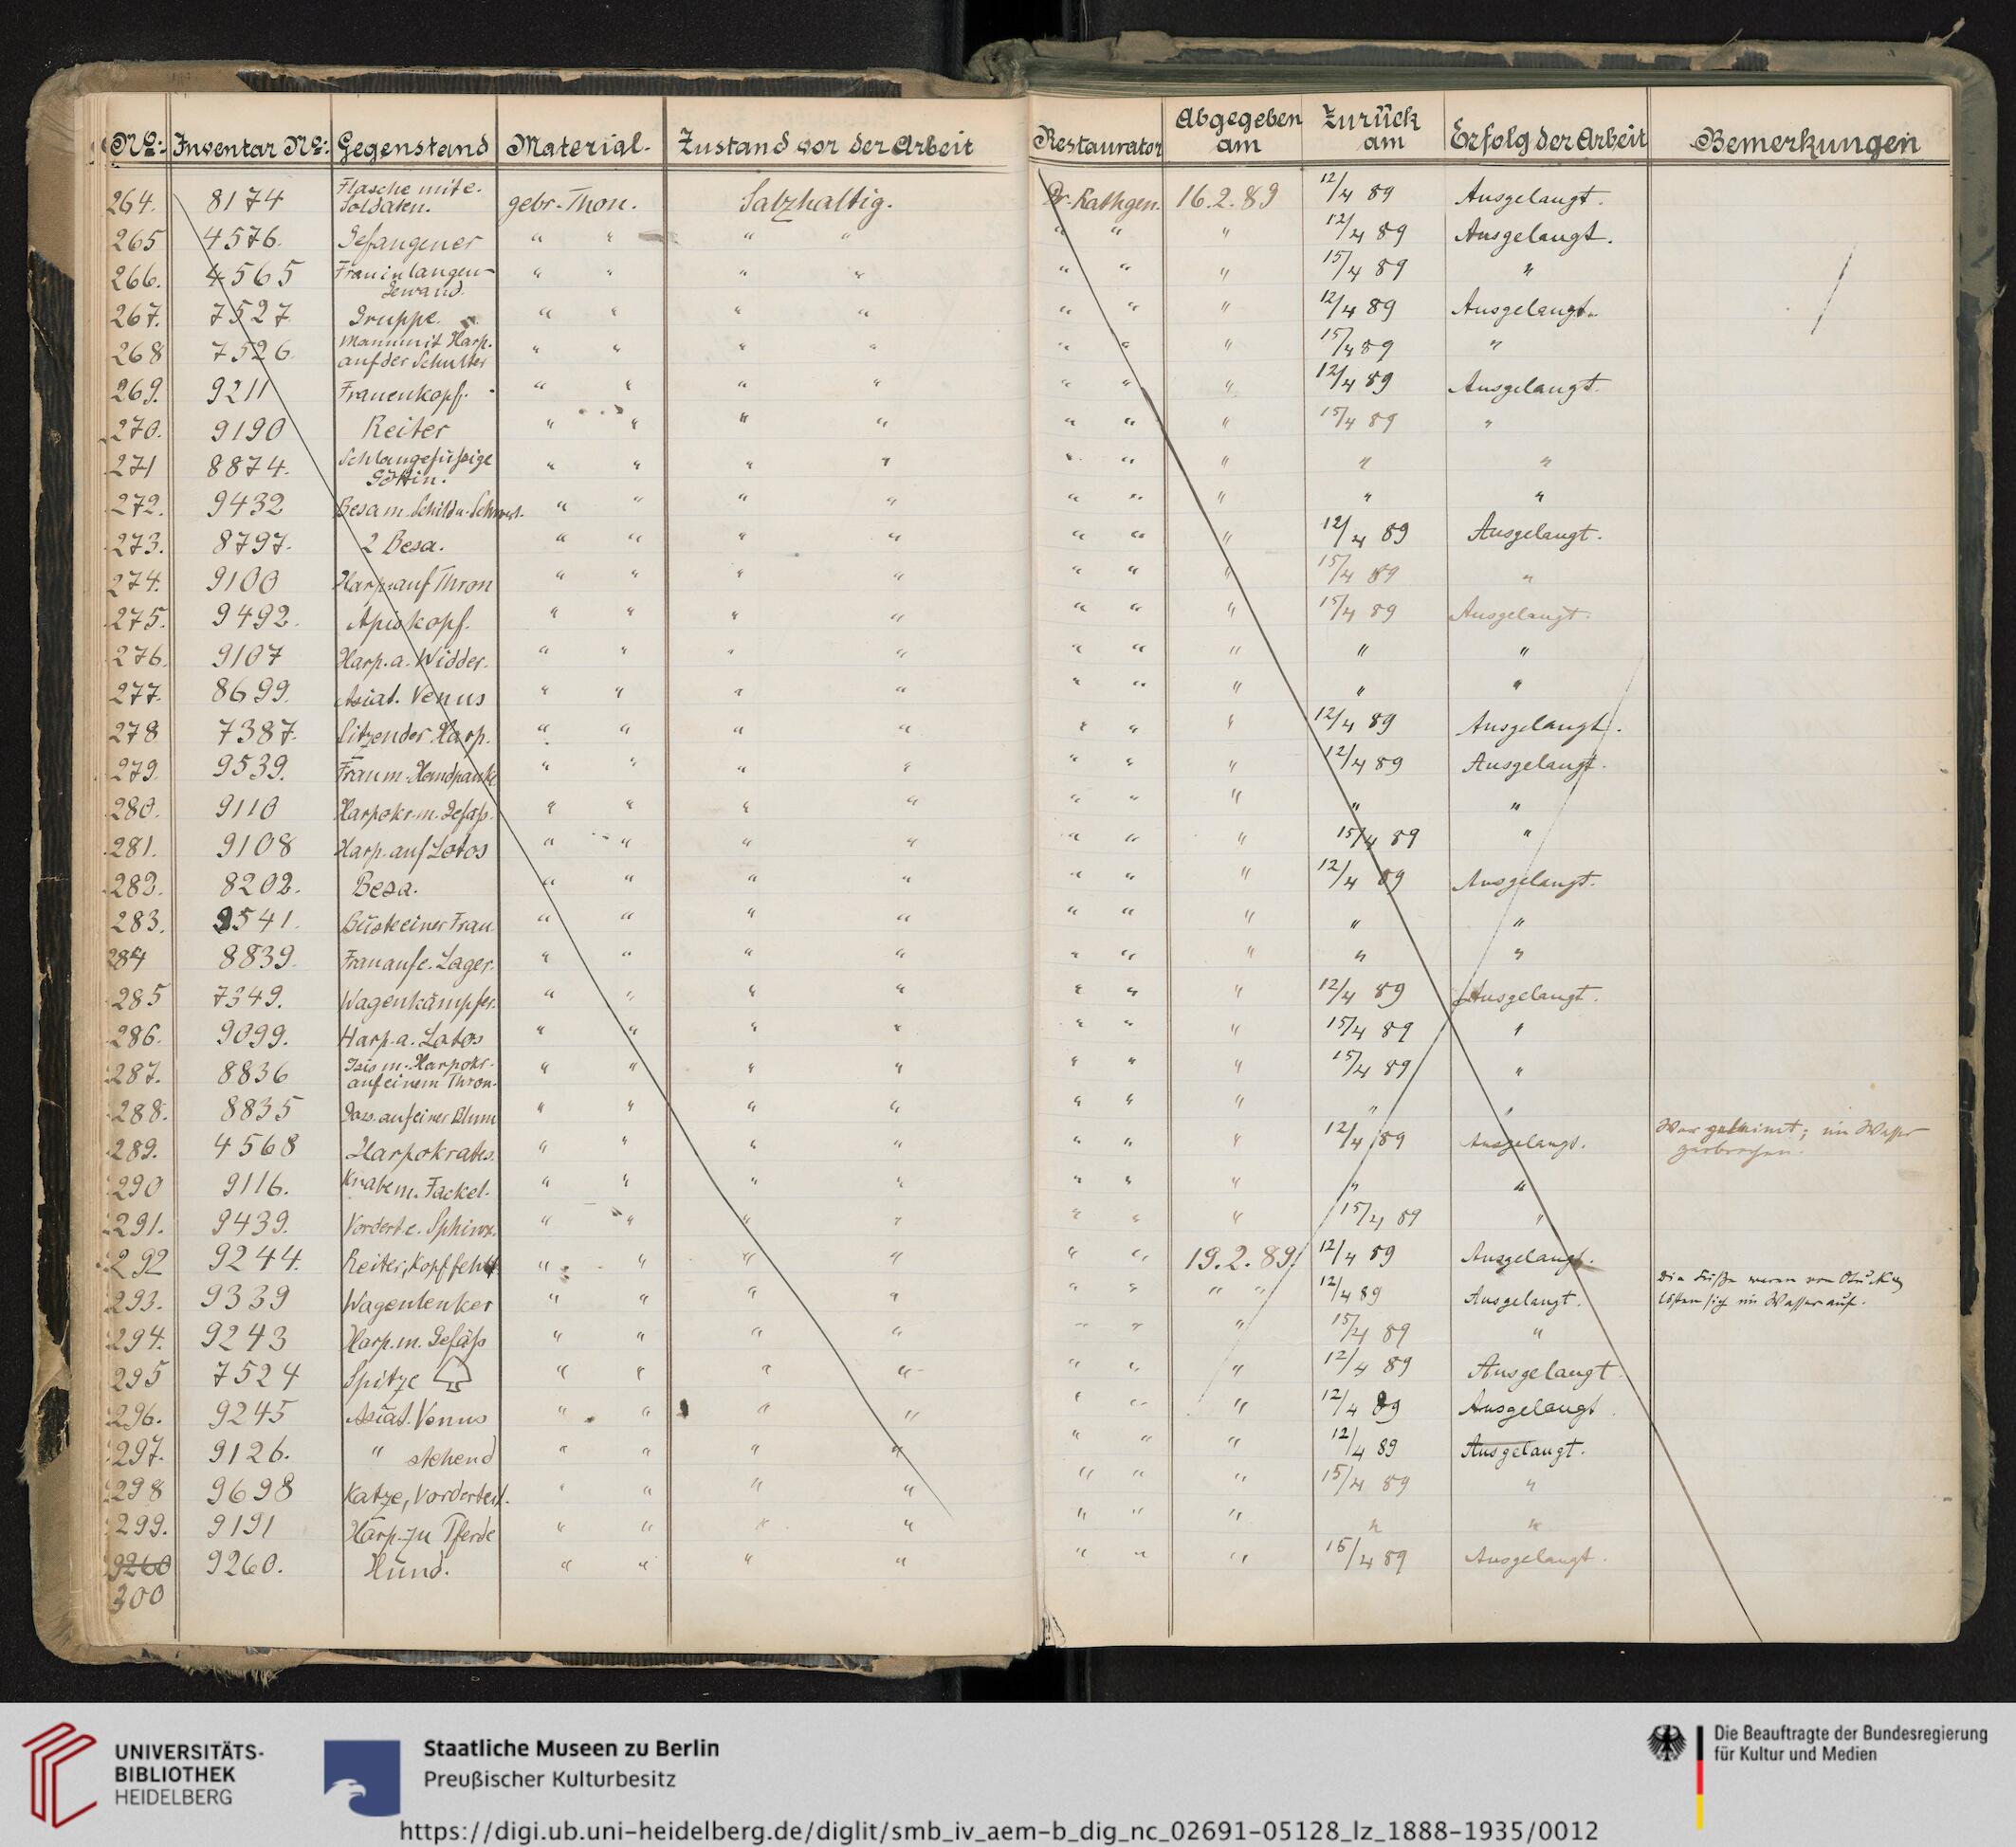 No: Inventar No: Gegenstand Material. Zustand vor der Arbeit Restaurator Abgegeben am Zurück am Erfolg der Arbeit Bemerkungen
264. 8174 Flasche mit e. Soldaten. gebr. Thon. Salzhaltig. Dr. Rathgen. 16.2.89 12/4 89 Ausgelaugt.
265 4576. Gefangener " " " " " " " 12/4 89 Ausgelaugt.
266. 4565 Frau in langen Gewand. " " " " " " " 15/4 89 "
267. 7527 Gruppe. " " " " " " " 12/4 89 Ausgelaugt.
268 7526. Mann mit Harp. auf der Schulter " " " " " " " 15/4 89 "
269. 9211 Frauenkopf. " " " " " " " 12/4 89 Ausgelaugt.
270. 9190 Reiter " " " " " " " 15/4 89 "
271 8874. Schlangefüssige Göttin. " " " " " " " " "
272. 9432 Besa m. Schild u. Schwert. " " " " " " " " "
273. 8797. 2 Besa. " " " " " " " 12/4 89 Ausgelaugt.
274. 9100 Harp. auf Thron " " " " " " " 15/4 89 "
275. 9492. Apiskopf. " " " " " " " 15/4 89 Ausgelaugt.
276. 9107 Harp. a. Widder. " " " " " " " " "
277. 8699. Asiat. Venus " " " " " " " " "
278 7387. Sitzender Harp. " " " " " " " 12/4 89 Ausgelaugt.
279. 9539. Frau m. Handpauke " " " " " " " 12/4 89 Ausgelaugt.
280. 9110 Harpokr. m. Gefäss. " " " " " " " " "
281. 9108 Harp. auf Lotos " " " " " " " 15/4 89 "
282. 8202. Besa. " " " " " " " 12/4 89 Ausgelaugt.
283. 9541. Büste einer Frau " " " " " " " " "
284 8839. Frau auf e. Lager. " " " " " " " " "
285 7349. Wagenkämpfer. " " " " " " " 12/4 89 Ausgelaugt.
286. 9099. Harp. a. Lotos " " " " " " " 15/4 89 "
287. 8836 Isis m. Harpokr. auf einem Thron. " " " " " " " 15/4 89 "
288. 8835 Dass. auf einer Blum " " " " " " " " "
289. 4568 Harpokrates. " " " " " " " 12/4 89 Ausgelaugt. War geleimt; im Wasser zerbrochen.
290 9116. Knabe m. Fackel. " " " " " " " " "
291. 9439. Vordert. e. Sphinx. " " " " " " " 15/4 89 "
292 9244. Reiter, Kopf fehlt. " " " " " " 19.2.89. 12/4 89 Ausgelaugt.
293. 9339 Wagenlenker " " " " " " " " 12/4 89 Ausgelaugt. Die Füße waren von Stuck u. lösten sich im Wasser auf.
294. 9243 Harp. m. Gefäss " " " " " " " 15/4 89 "
295 7524 Spitze " " " " " " " 12/4 89 Ausgelaugt
296. 9245 Asiat. Venus " " " " " " " 12/4 89 Ausgelaugt.
297. 9126. " stehend " " " " " " " 12/4 89 Ausgelaugt.
298 9698 Katze, Vorderteil. " " " " " " " 15/4 89 "
299. 9191 Harp. zu Pferde " " " " " " " " "
9260 9260. Hund. " " " " " " " 15/4 89 Ausgelaugt.
300
UNIVERSITÄTS-
BIBLIOTHEK
HEIDELBERG
Staatliche Museen zu Berlin
Preußischer Kulturbesitz
Die Beauftragte der Bundesregierung
für Kultur und Medien
https://digi.ub.uni-heidelberg.de/diglit/smb_iv_aem-b_dig_nc_02691-05128_lz_1888-1935/0012